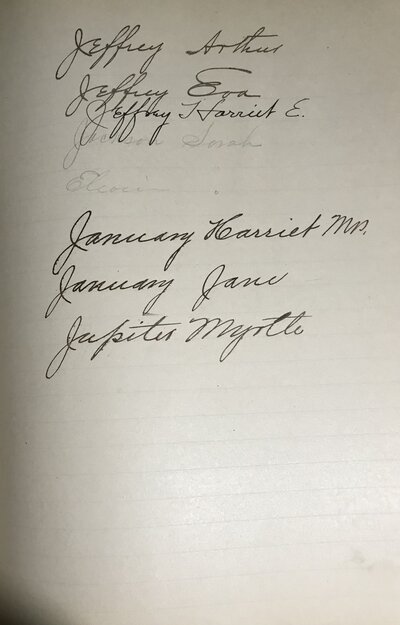 Jeffrey Arthur
Jeffrey Eva
Jeffrey Harriet E.
Jackson Sarah
January Harriet Mrs.
January Jane
Jupiter Myrtle